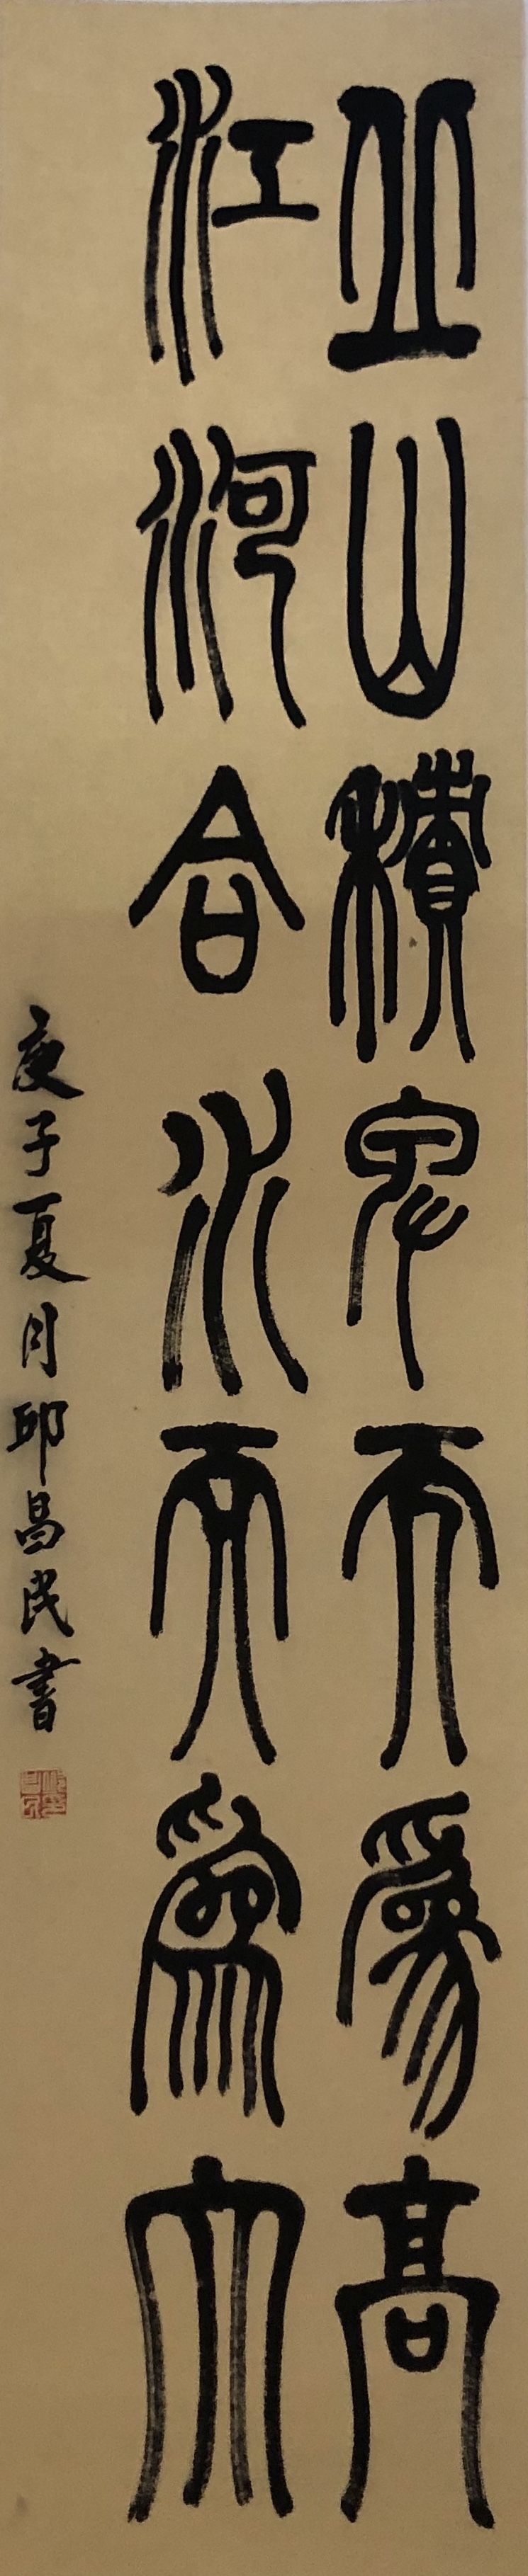 丘山積卑而爲高
江河合水而爲大
庚子夏月邱昌民書